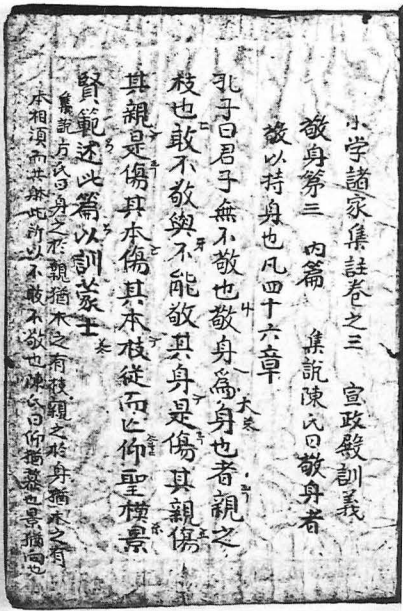 小学諸家集註卷之三 宣政殿訓義
敬身第三 內篇 集說陳氏曰敬身者
敬以持身也凡四十六章
孔子曰君子無不敬也敬身爲大身也者親之
枝也敢不敬與不能敬其身是傷其親傷
其親是傷其本傷其本枝從而亡仰聖模景
賢範述此篇以訓蒙士
集說方氏曰身之於親猶木之有枝親之於身猶木之有
本相須而共體此所以不敢不敬也陳氏曰仰猶慕也景猶向也